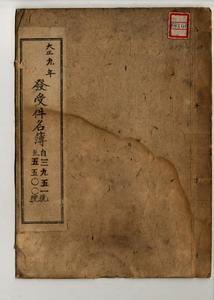 大正九年
發受件名簿
自三九五一號
至五五〇〇號